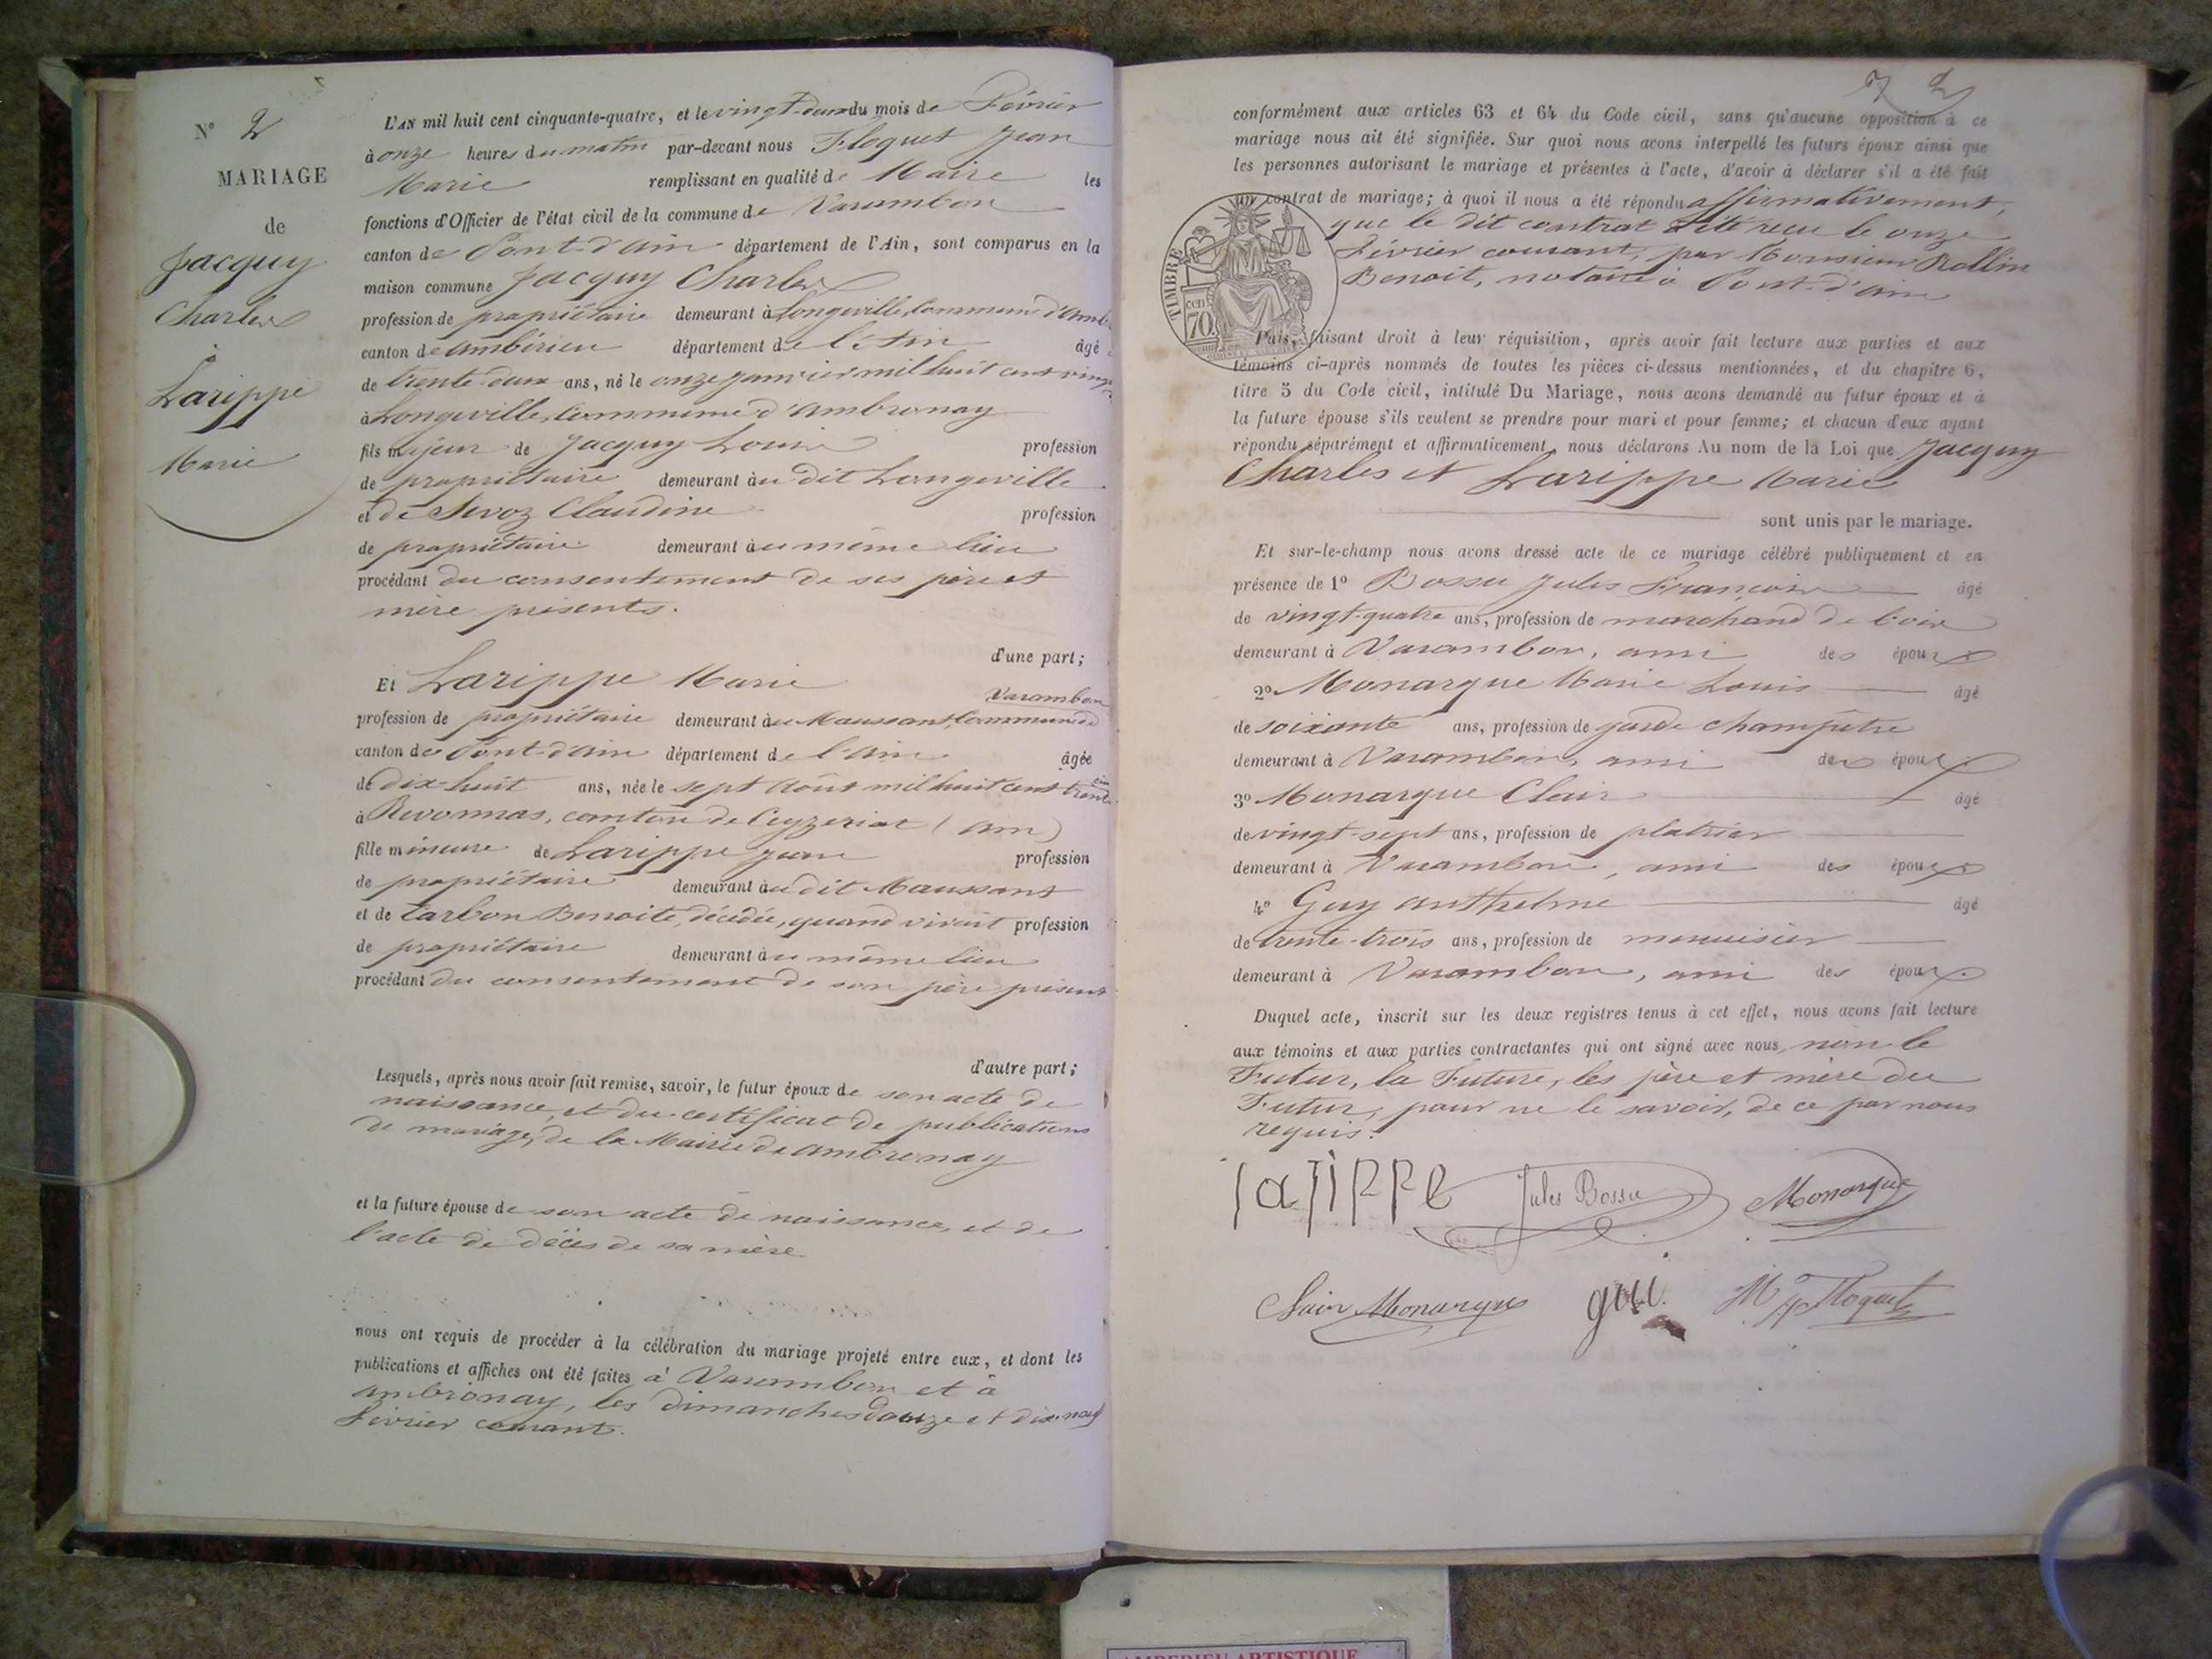 N° 2
MARIAGE
de
Jacquy
Charles
&
Larippe
Marie
L'AN mil huit cent cinquante-quatre, et le vingt-deux du mois de Février
à onze heures du matin par-devant nous Floquet Jean
Marie remplissant en qualité de Maire les
fonctions d'Officier de l'état civil de la commune de Varambon
canton de Pont-d'Ain département de l'Ain, sont comparus en la
maison commune Jacquy Charles
profession de propriétaire demeurant à Longeville, commune d'Amb
canton de Ambérieu département de l'Ain âgé
de trente-deux ans, né le onze janvier mil huit cent vingt
à Longeville, Commune d'Ambronay
fils majeur de Jacquy Louis profession
de propriétaire demeurant au dit Longeville
et de Sevoz Claudine profession
de propriétaire demeurant au même lieu
procédant du consentement de ses père et
mère présents.
d'une part;
Et Larippe Marie
Varambon
profession de propriétaire demeurant au Maussant, Commune de
canton de Pont-d'Ain département de l'Ain âgée
de dix-huit ans, née le sept Août mil huit cent trente
à Revonnas, canton de Ceyzeriat (Ain)
fille mineure de Larippe Jean profession
de propriétaire demeurant au dit Maussant
et de Carbon Benoite, décédée, quand vivait profession
de propriétaire demeurant au même lieu
procédant du consentement de son père présent
d'autre part;
Lesquels, après nous avoir fait remise, savoir, le futur époux de son acte de
naissance, et du certificat de publications
de mariage, de la Mairie de Ambronay
et la future épouse de son acte de naissance, et de
l'acte de décès de sa mère
nous ont requis de procéder à la célébration du mariage projeté entre eux, et dont les
publications et affiches ont été faites à Varambon et à
Ambronay, les dimanches douze et dix-neuf
Février courant.
2
conformément aux articles 63 et 64 du Code civil, sans qu'aucune opposition à ce
mariage nous ait été signifiée. Sur quoi nous avons interpellé les futurs époux ainsi que
les personnes autorisant le mariage et présentes à l'acte, d'avoir à déclarer s'il a été fait
un contrat de mariage; à quoi il nous a été répondu affirmativement,
que le dit contrat a été reçu le onze
Février courant, par Monsieur Rollin
Benoit, notaire à Pont-d'Ain
TIMBRE
cen
70
Puis, faisant droit à leur réquisition, après avoir fait lecture aux parties et aux
témoins ci-après nommés de toutes les pièces ci-dessus mentionnées, et du chapitre 6,
titre 5 du Code civil, intitulé Du Mariage, nous avons demandé au futur époux et à
la future épouse s'ils veulent se prendre pour mari et pour femme; et chacun d'eux ayant
répondu séparément et affirmativement, nous déclarons Au nom de la Loi que Jacquy
Charles et Larippe Marie
sont unis par le mariage.
Et sur-le-champ nous avons dressé acte de ce mariage célébré publiquement et en
présence de 1° Bossu Jules François âgé
de vingt-quatre ans, profession de marchand de bois
demeurant à Varambon, ami des époux
2° Monarque Marie Louis âgé
de soixante ans, profession de garde champêtre
demeurant à Varambon, ami des époux
3° Monarque Clair âgé
de vingt-sept ans, profession de platrier
demeurant à Varambon, ami des époux
4° Guy Anthelme âgé
de trente-trois ans, profession de menuisier
demeurant à Varambon, ami des époux.
Duquel acte, inscrit sur les deux registres tenus à cet effet, nous avons fait lecture
aux témoins et aux parties contractantes qui ont signé avec nous, non le
Futur, la Future, les père et mère du
Futur, pour ne le savoir, de ce par nous
requis.
larippe Jules Bossu Monarque
Clair Monarque gui Floquet
AMBERIEU ARTISTIQUE